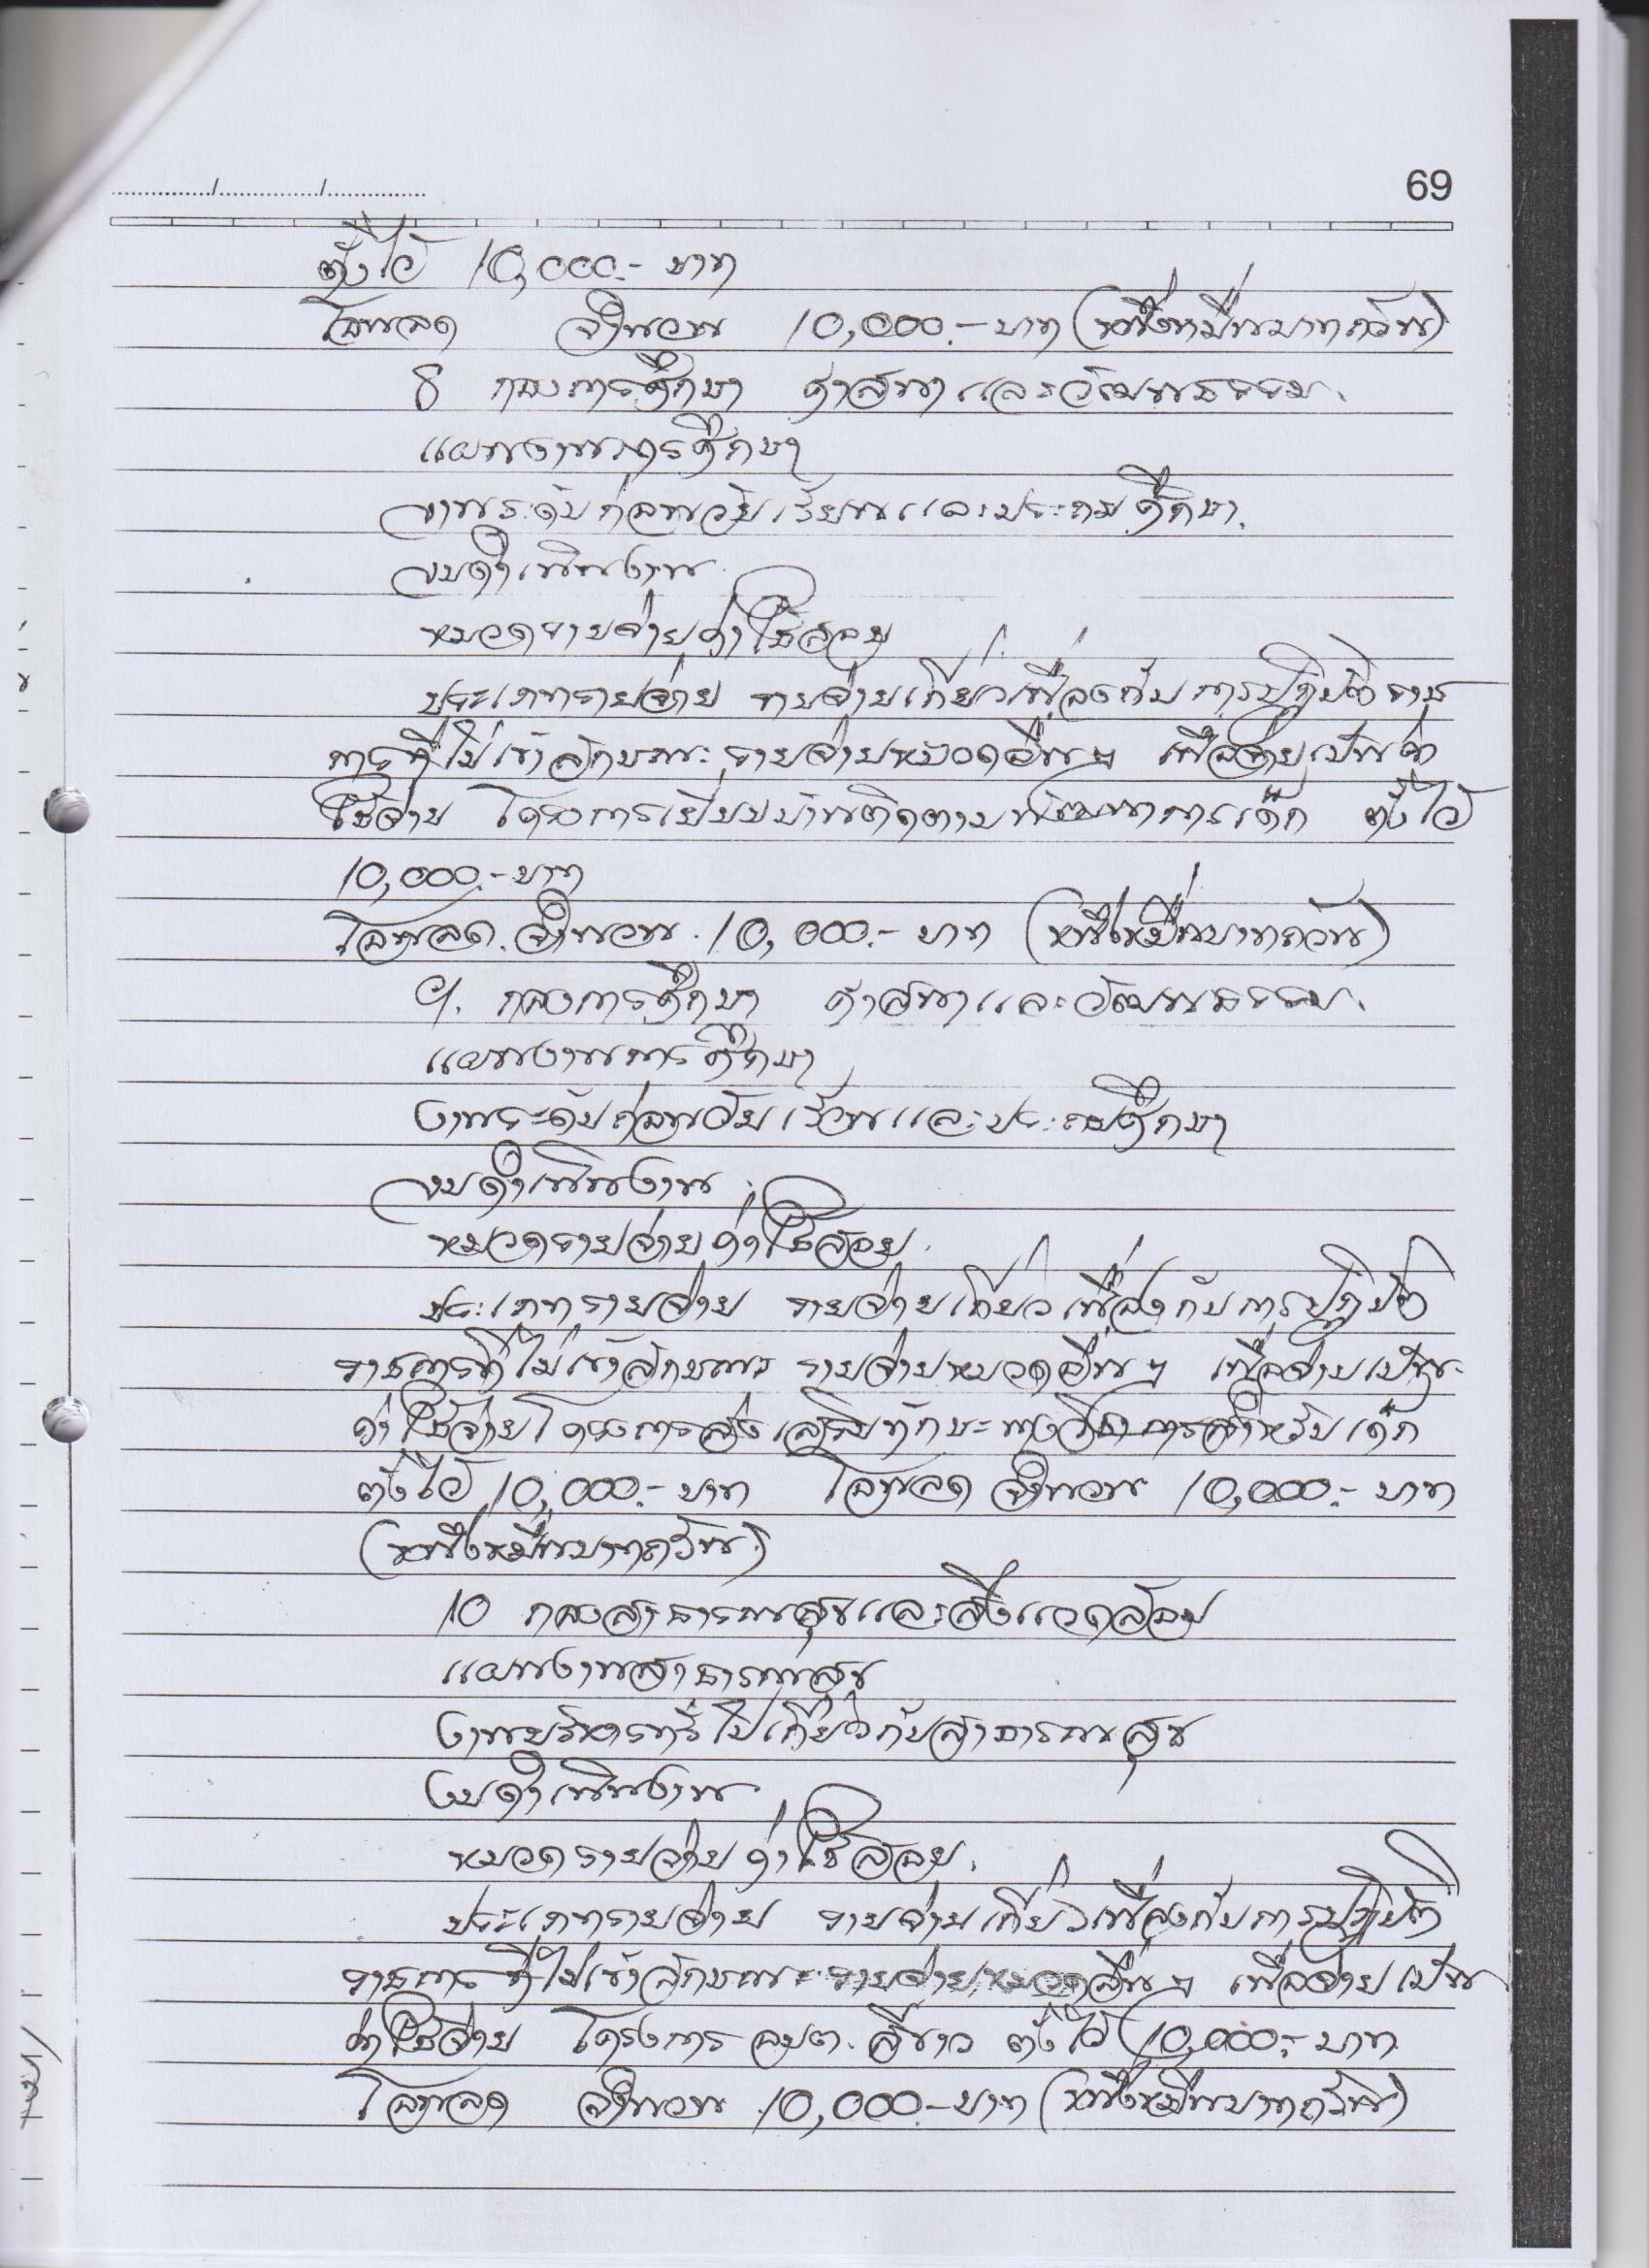 ............../............../..............
69
ตั้งไว้ 10,000.- บาท
โอนลด จำนวน 10,000.- บาท (หนึ่งหมื่นบาทถ้วน)
8 กองการศึกษา ศาสนาและวัฒนธรรม.
แผนงานการศึกษา
งานระดับก่อนวัยเรียนและประถมศึกษา.
งบดำเนินงาน
หมวดรายจ่ายค่าใช้สอย
ประเภทรายจ่าย รายจ่ายเกี่ยวเนื่องกับการปฏิบัติราช
การที่ไม่เข้าลักษณะรายจ่ายหมวดอื่นๆ เพื่อจ่ายเป็นค่า
ใช้จ่าย โครงการเยี่ยมบ้านติดตามพัฒนาการเด็ก ตั้งไว้
10,000.- บาท
โอนลด จำนวน 10,000.- บาท (หนึ่งหมื่นบาทถ้วน)
9. กองการศึกษา ศาสนาและวัฒนธรรม.
แผนงานการศึกษา
งานระดับก่อนวัยเรียนและประถมศึกษา
งบดำเนินงาน
หมวดรายจ่ายค่าใช้สอย.
ประเภทรายจ่าย รายจ่ายเกี่ยวเนื่องกับการปฏิบัติ
ราชการที่ไม่เข้าลักษณะ รายจ่ายหมวดอื่นๆ เพื่อจ่ายเป็น
ค่าใช้จ่ายโครงการส่งเสริมทักษะทางวิชาการสำหรับเด็ก
ตั้งไว้ 10,000.- บาท โอนลด จำนวน 10,000.- บาท
(หนึ่งหมื่นบาทถ้วน)
10 กองสาธารณสุขและสิ่งแวดล้อม
แผนงานสาธารณสุข
งานบริหารทั่วไปเกี่ยวกับสาธารณสุข
งบดำเนินงาน
หมวดรายจ่ายค่าใช้สอย.
ประเภทรายจ่าย รายจ่ายเกี่ยวเนื่องกับการปฏิบัติ
ราชการที่ไม่เข้าลักษณะรายจ่ายหมวดอื่นๆ เพื่อจ่ายเป็น
ค่าใช้จ่าย โครงการ อบต. สีขาว ตั้งไว้ 10,000.- บาท
โอนลด จำนวน 10,000.- บาท (หนึ่งหมื่นบาทถ้วน)